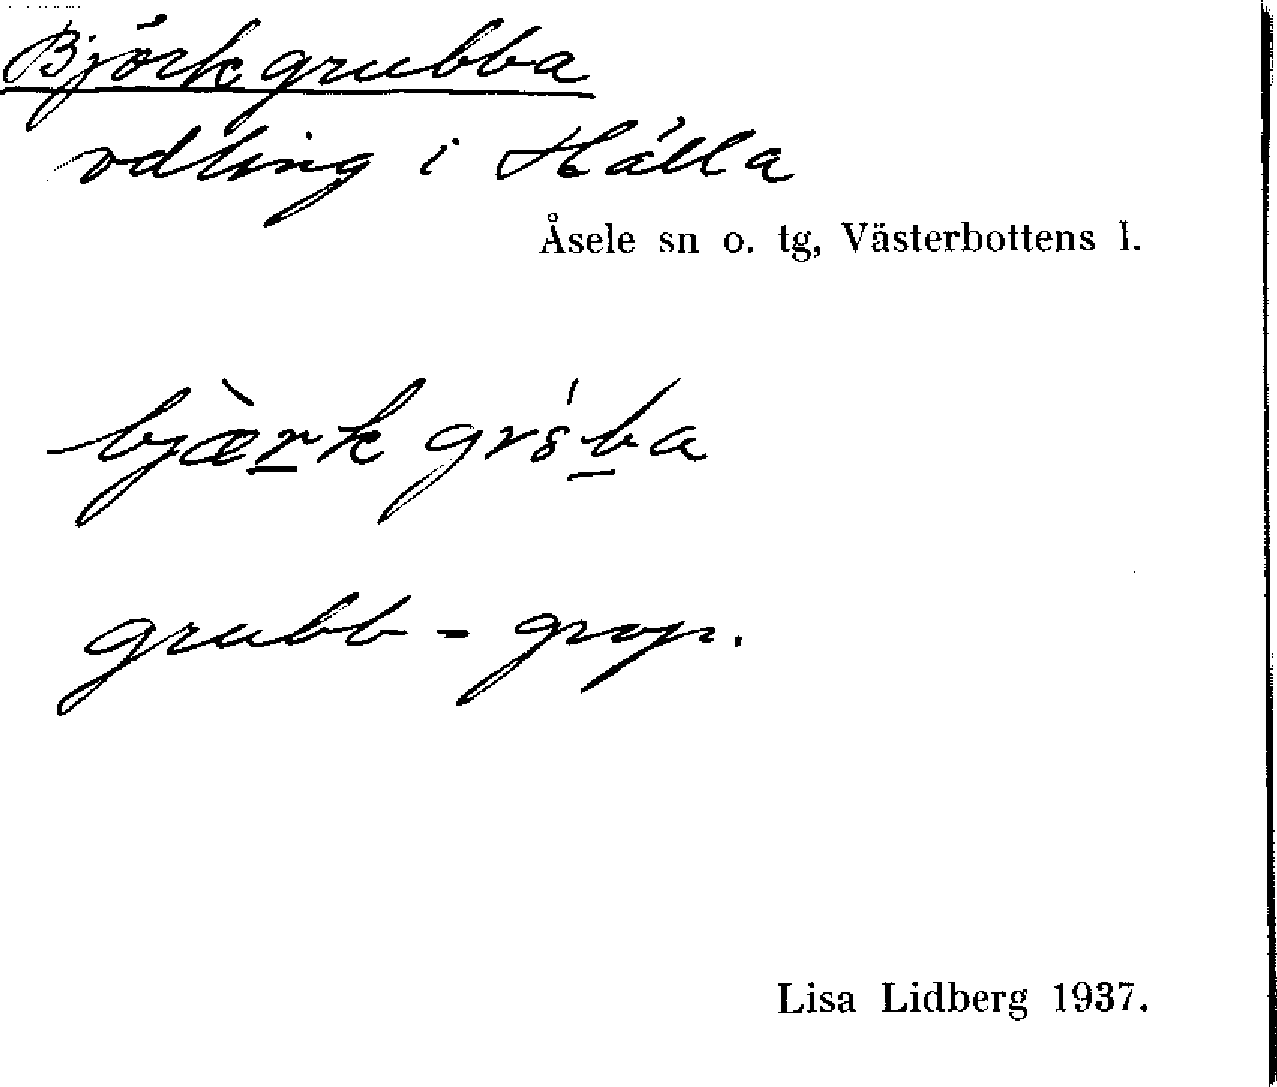 Björkgrubba
odling i Hälla
Åsele sn o. tg, Västerbottens l.
grubb - grop.
Lisa Lidberg 1937.